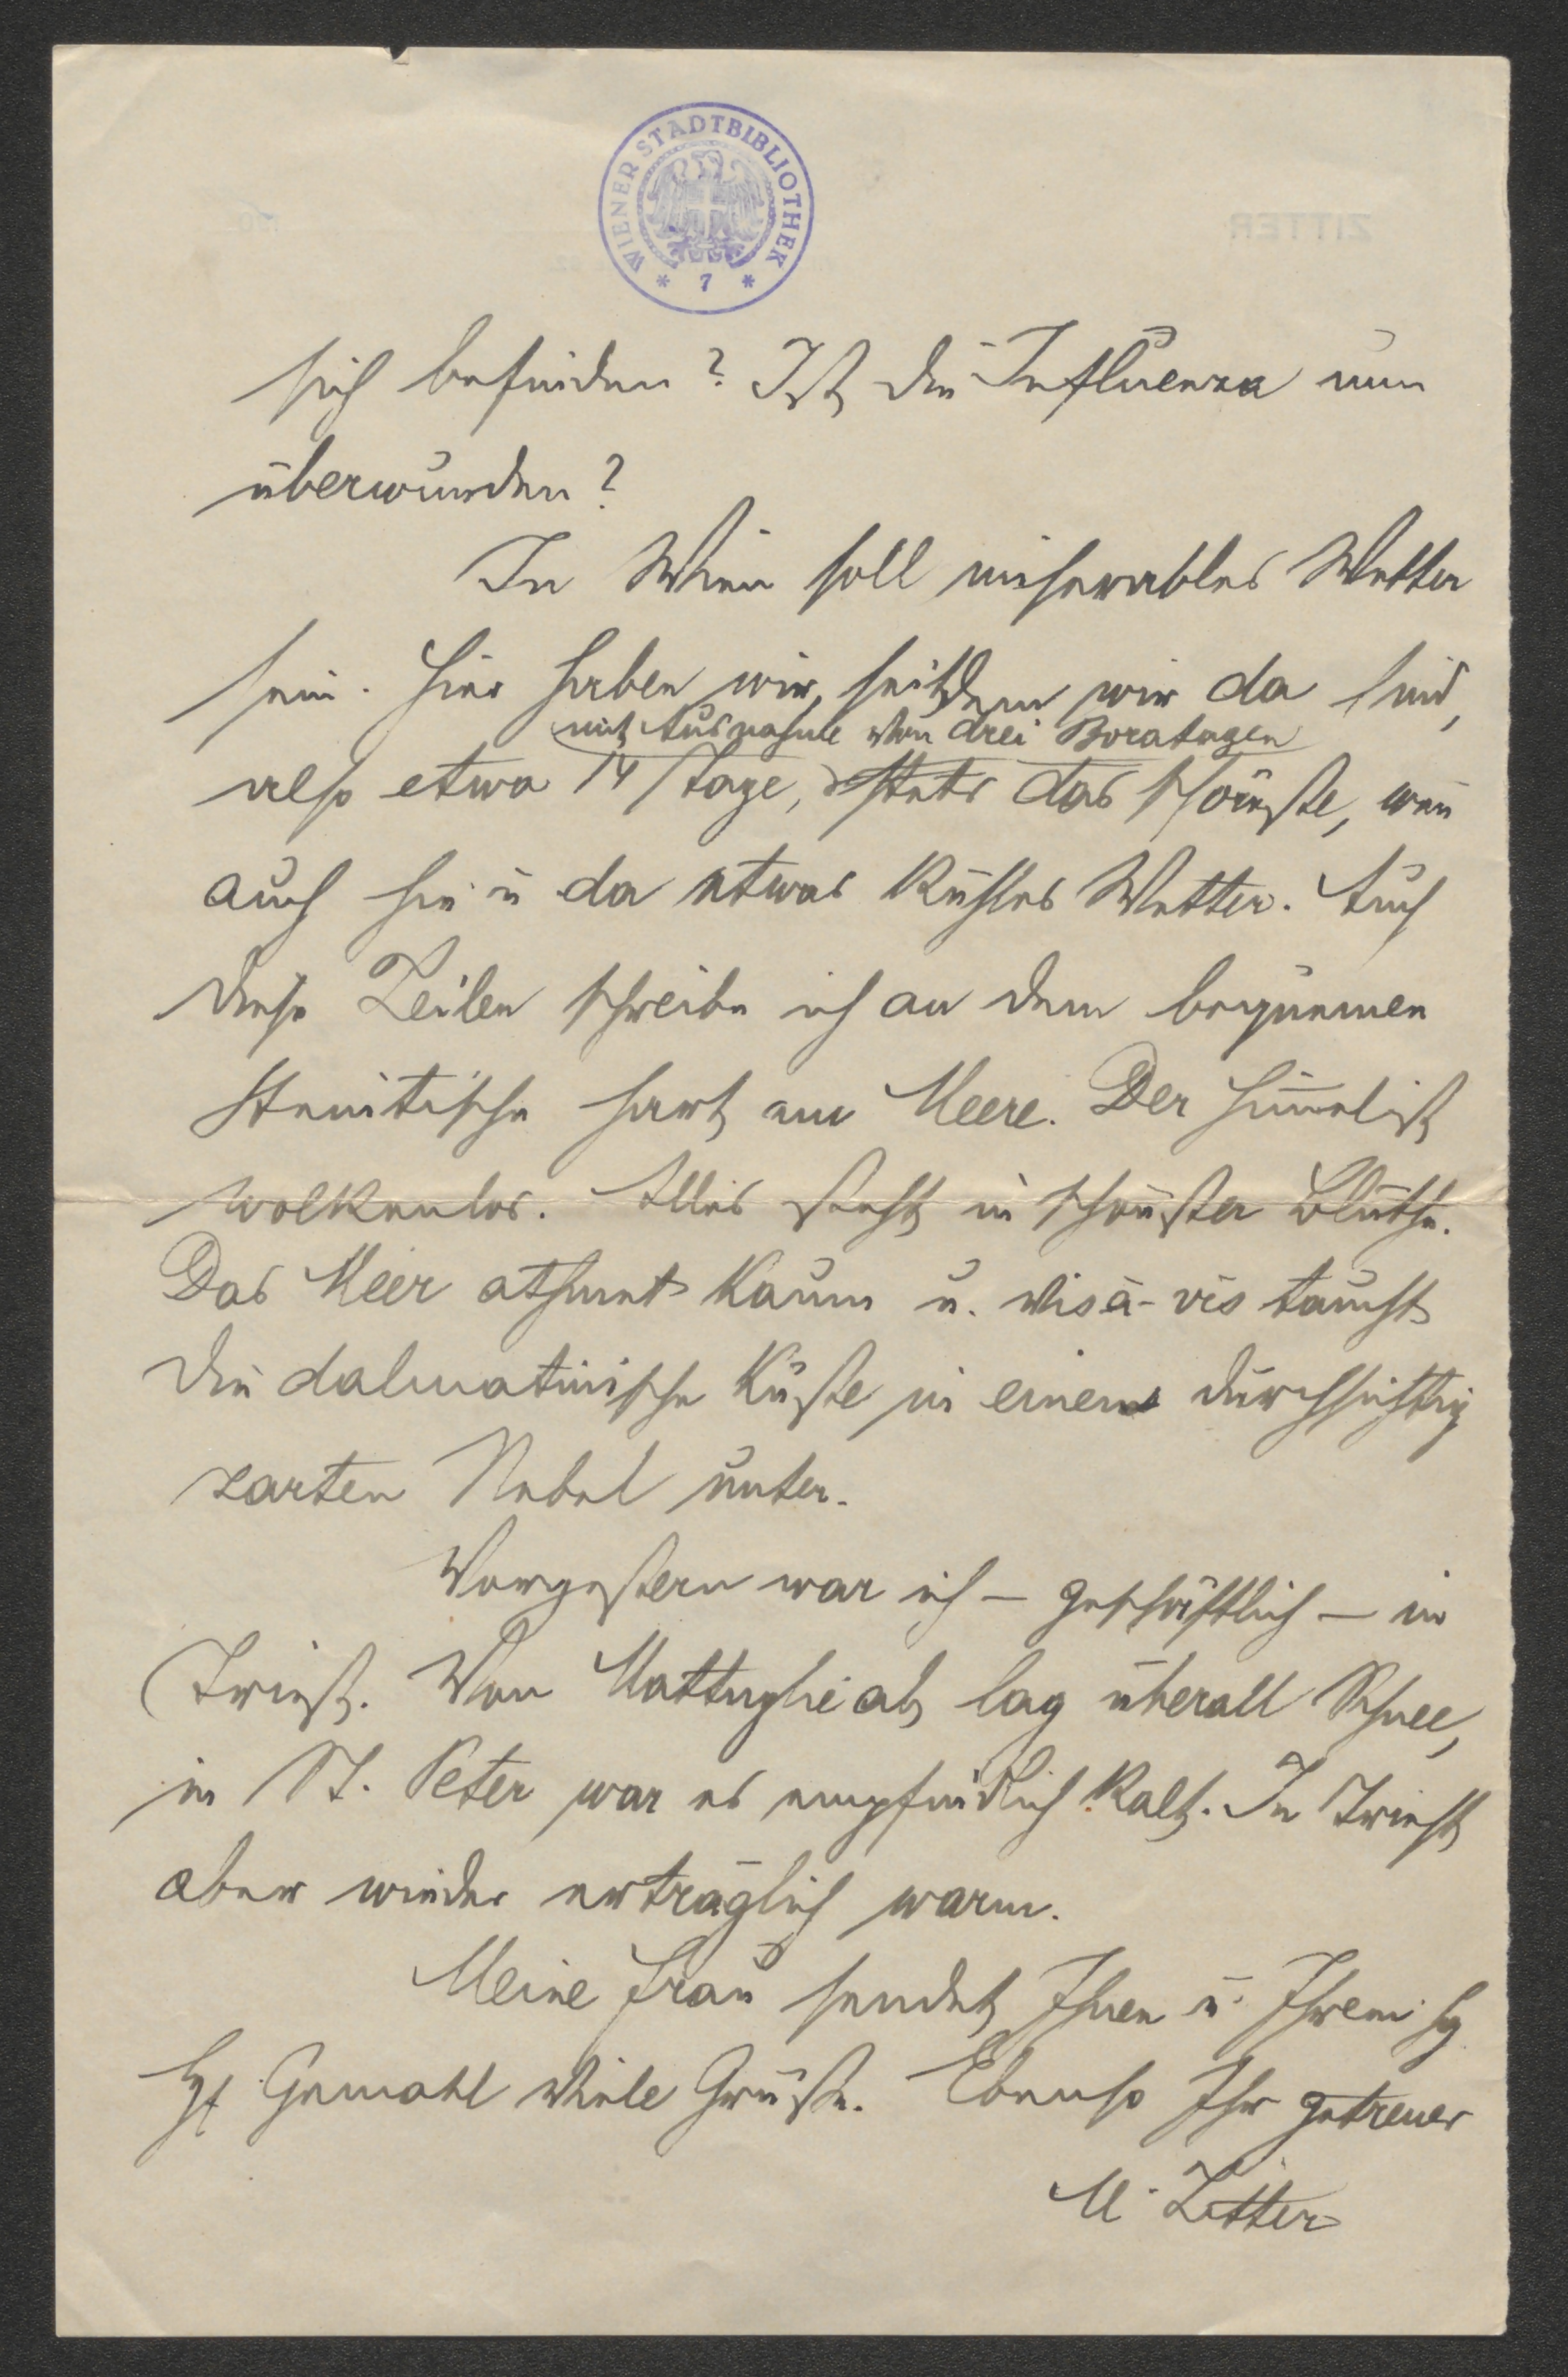 WIENER STADTBIBLIOTHEK
* 7 *
sich befinden? Ist die Influenza nun
überwunden?
In Wien soll miserables Wetter
sein. Hier haben wir, seitdem wir da sind,
mit Ausnahme von drei Boratagen
also etwa 14 Tage, stets das schönste, wenn
auch hie u da etwas kühles Wetter. Auch
diese Zeilen schreibe ich an dem bequemen
Steintische hart am Meere. Der Him̅el ist
wolkenlos. Alles steht in schönster Blüthe.
Das Meer athmet kaum u. vis à-vis taucht
die dalmatinische Küste in einem durchsichtig
zarten Nebel unter.
Vorgestern war ich – geschäftlich – in
Triest. Von Mattuglie ab lag überall Schnee,
in St. Peter war es empfindlich kalt. In Triest
aber wieder erträglich warm.
Meine Frau sendet Ihnen u. Ihrem
Gemahl viele Grüße. Ebenso Ihr getreuer
M. Zitter